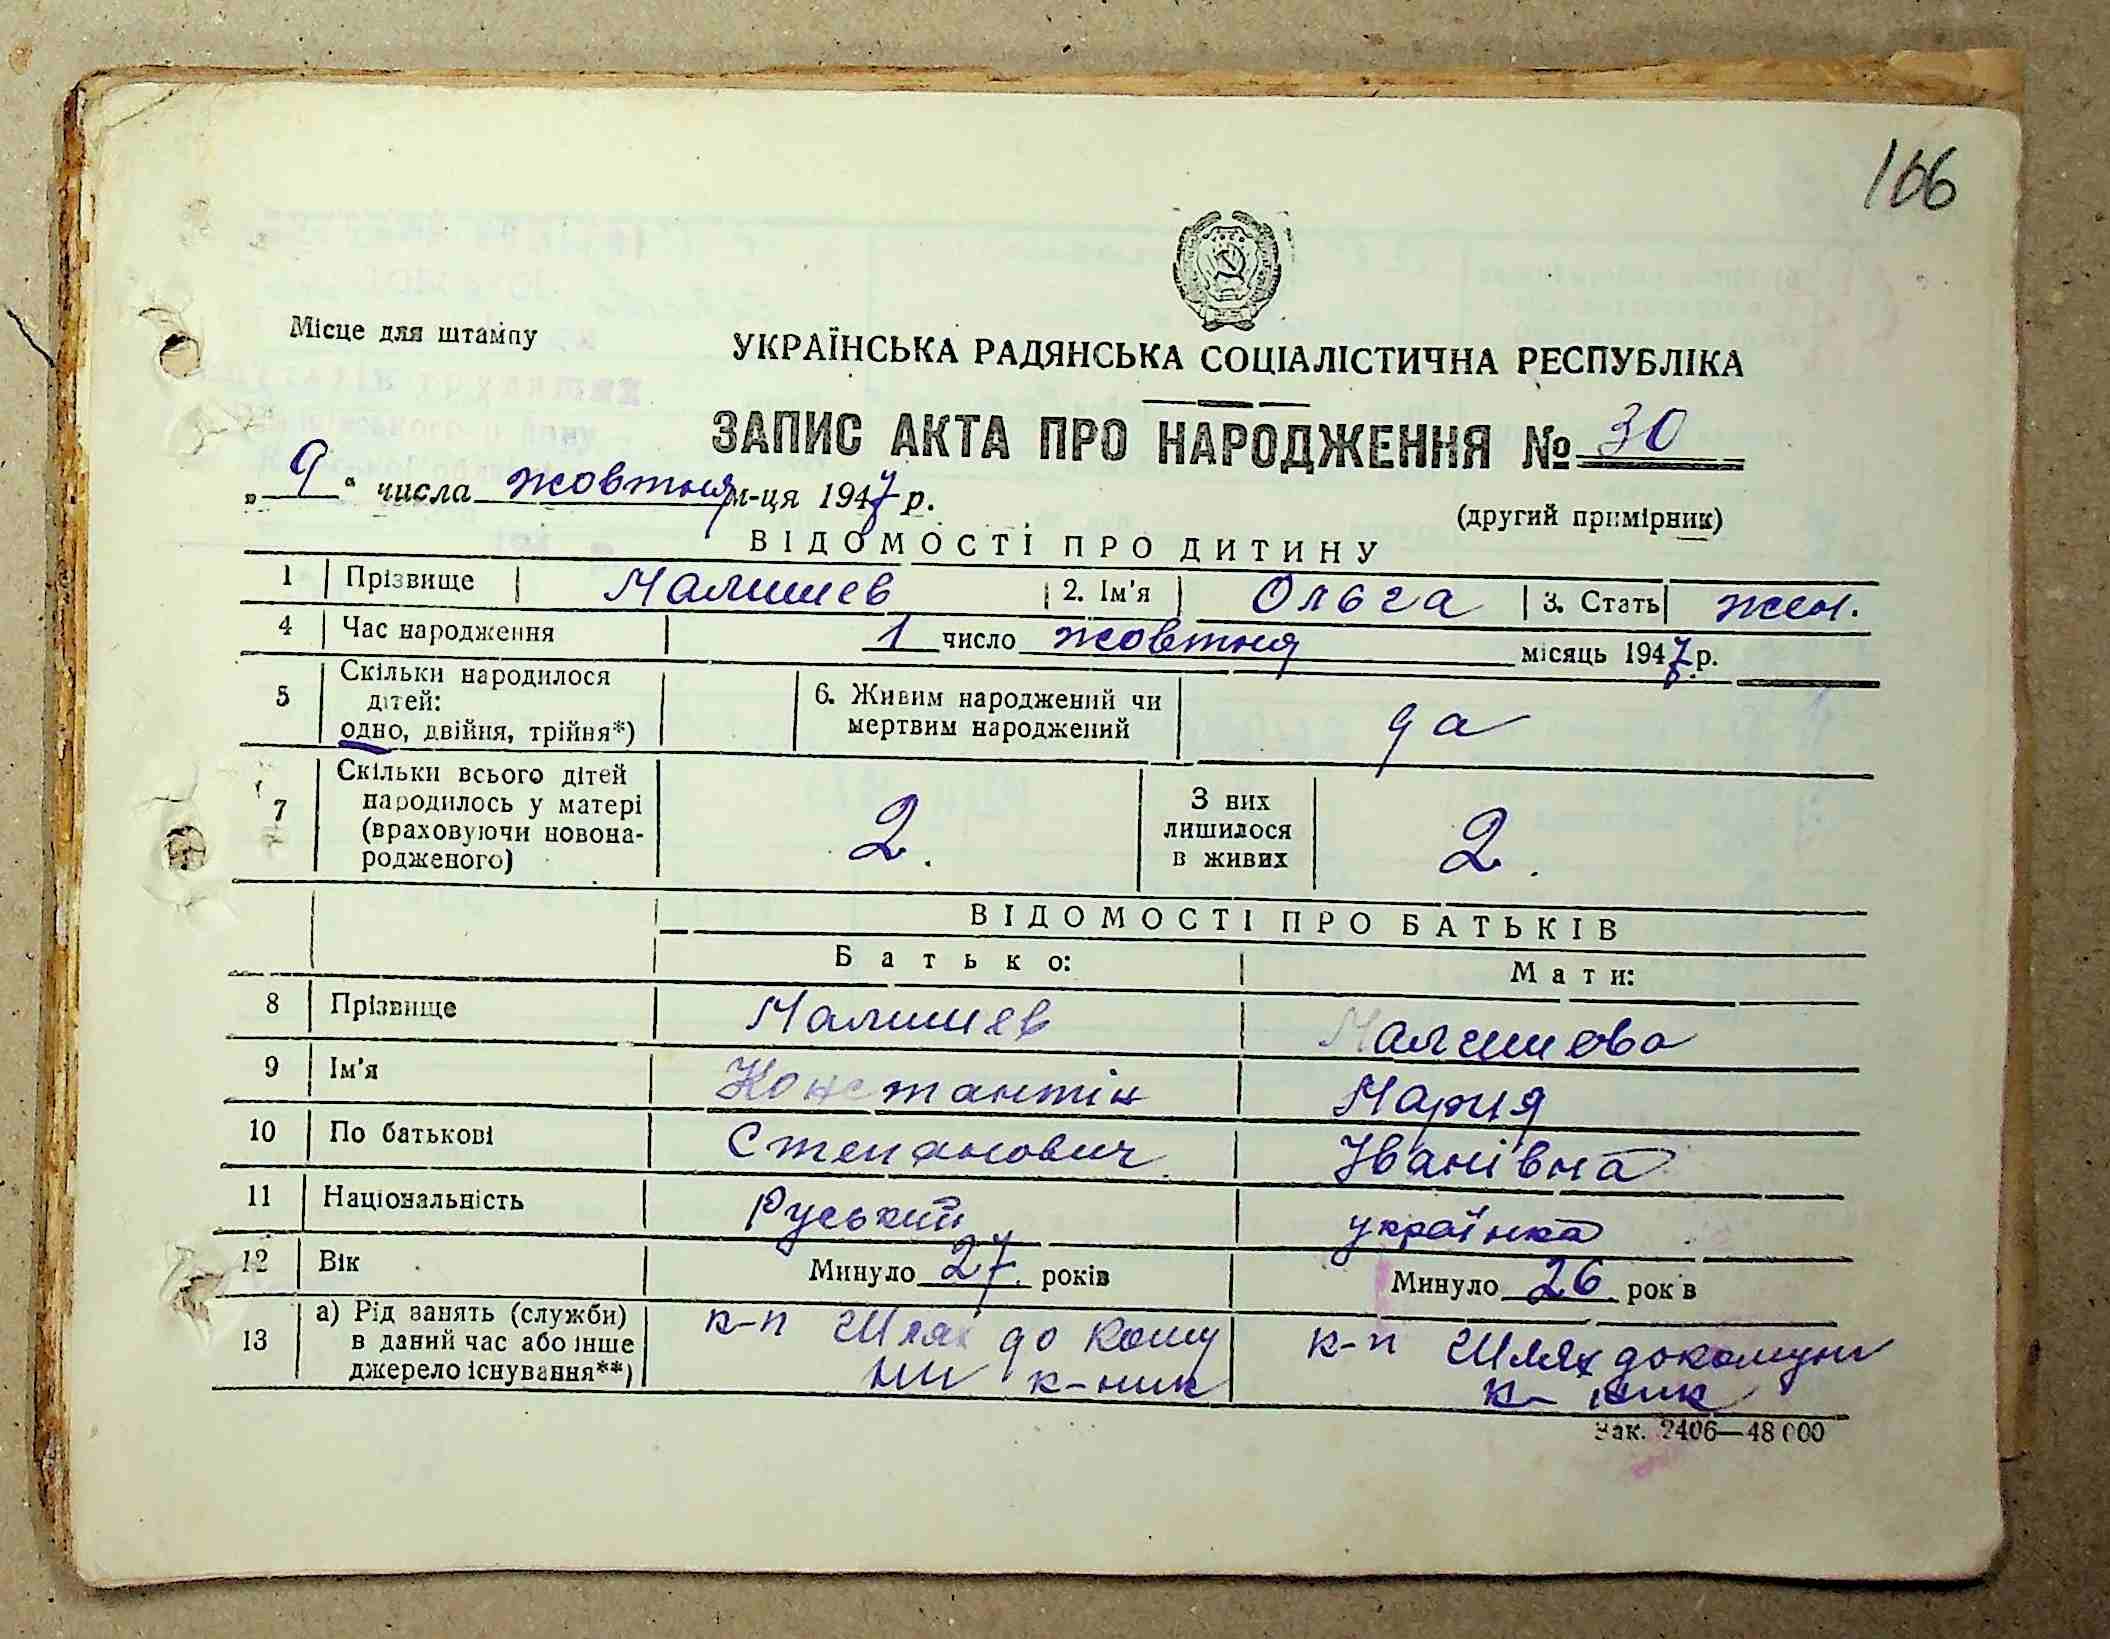 166
Місце для штампу
УКРАЇНСЬКА РАДЯНСЬКА СОЦІАЛІСТИЧНА РЕСПУБЛІКА
ЗАПИС АКТА ПРО НАРОДЖЕННЯ № 30
„ 9 “ числа жовтня м-ця 1947 р.
(другий примірник)
ВІДОМОСТІ ПРО ДИТИНУ
1 Прізвище Малишев 2. Ім'я Ольга 3. Стать жен.
4 Час народження 1 число жовтня місяць 1947 р.
5 Скільки народилося дітей: одно, двійня, трійня*) 6. Живим народжений чи мертвим народжений да
7 Скільки всього дітей народилось у матері (враховуючи новонародженого) 2. З них лишилося в живих 2.
ВІДОМОСТІ ПРО БАТЬКІВ
Батько: Мати:
8 Прізвище Малишев Малишева
9 Ім'я Константін Мария
10 По батькові Степанович Іванівна
11 Національність Руський українка
12 Вік Минуло 27. років Минуло 26 рок в
13 а) Рід занять (служби) в даний час або інше джерело існування**) к-п Шлях до Кому ни к-ник к-п Шлях до комуни к-ник
Зак. 2406—48 000